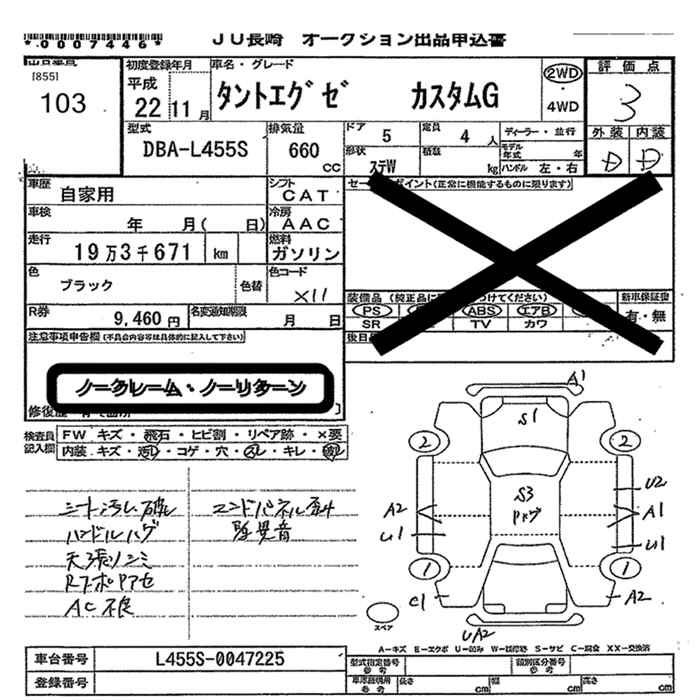 *0007446*
JU長崎 オークション出品申込書
[855]
103
初度登録年月
平成
22年11月
車名・グレード
タントエグゼ カスタムG
2WD
・
4WD
評価点
3
外装 内装
D D
型式
DBA-L455S
排気量
660
CC
ドア 5
定員 4人
ディーラー・並行
モデル年式 年
形状 ステW
積載 kg
ハンドル 左・右
車歴 自家用
シフト CAT
車検 年 月( 日)
冷房 AAC
走行 19万3千671 km
燃料 ガソリン
色 ブラック
色替
色コード X11
R券 9,460円
名変通知期限 月 日
セー ポイント(正常に機能するものに限ります)
装備品(純正品に けてください)
PS ABS エアB
SR TV カワ
新車保証書
有・無
後日
注意事項申告欄(不具合内容等は具体的に記入して下さい)
ノークレーム・ノーリターン
検査員記入欄
FW キズ・飛石・ヒビ割・リペア跡・×要
内装 キズ・汚レ・コゲ・穴・スレ・キレ・破レ
シート汚レ破レ
ハンドルハゲ
天張りシミ
AC不良
エンドパネル歪み
A1
S1
2 2
S3
U2
A2 A1
U1 U1
1 1
C1 A2
UA2
スペア
A-キズ E-エクボ U-凹み W-補修跡 S-サビ C-腐食 XX-交換済
車台番号 L455S-0047225
登録番号
型式指定番号 参考
類別区分番号 参考
長さ cm 幅 cm 高さ cm